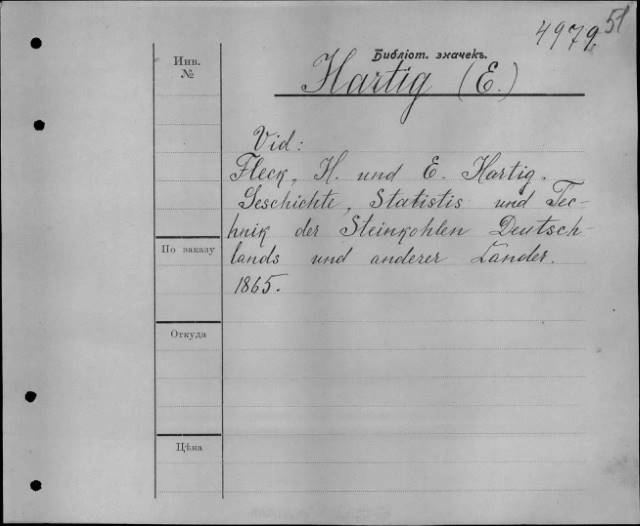 4979 51
Библіот. значекъ.
Инв.
№
Hartig (E.)
Vid:
Fleck, H. und E. Hartig.
Geschichte, Statistis und Tec-
hnik der Steinkohlen Deutsch-
lands und anderer Länder.
1865.
По заказу
Откуда
Цѣна